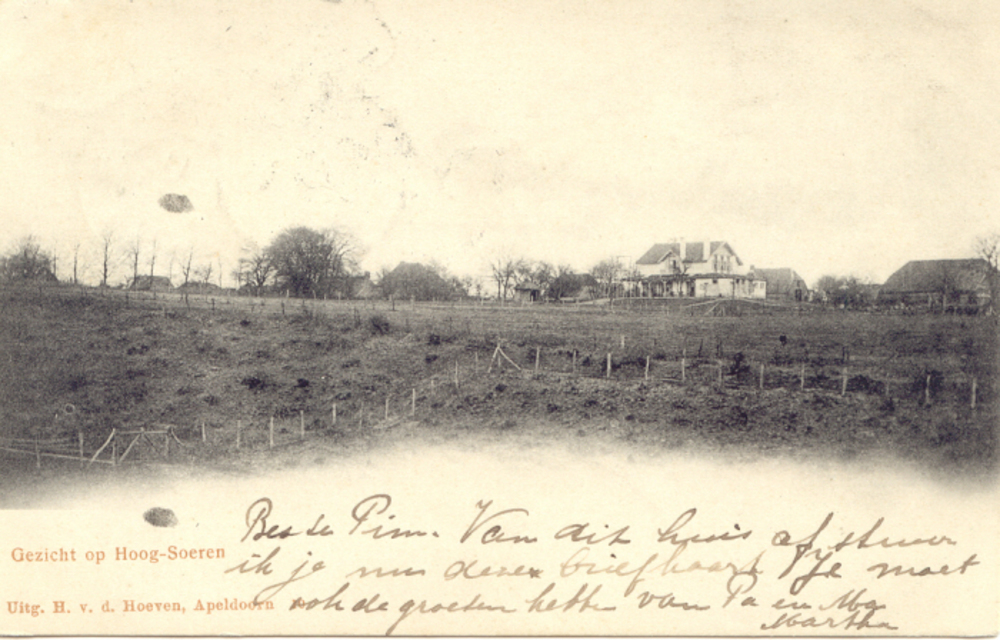 Beste Pim. Van dit huis af stuur
Gezicht op Hoog-Soeren
ik je nu deze briefkaart. Je moet
Uitg. H. v. d. Hoeven, Apeldoorn
ook de groeten hebben van Pa en Ma
Martha